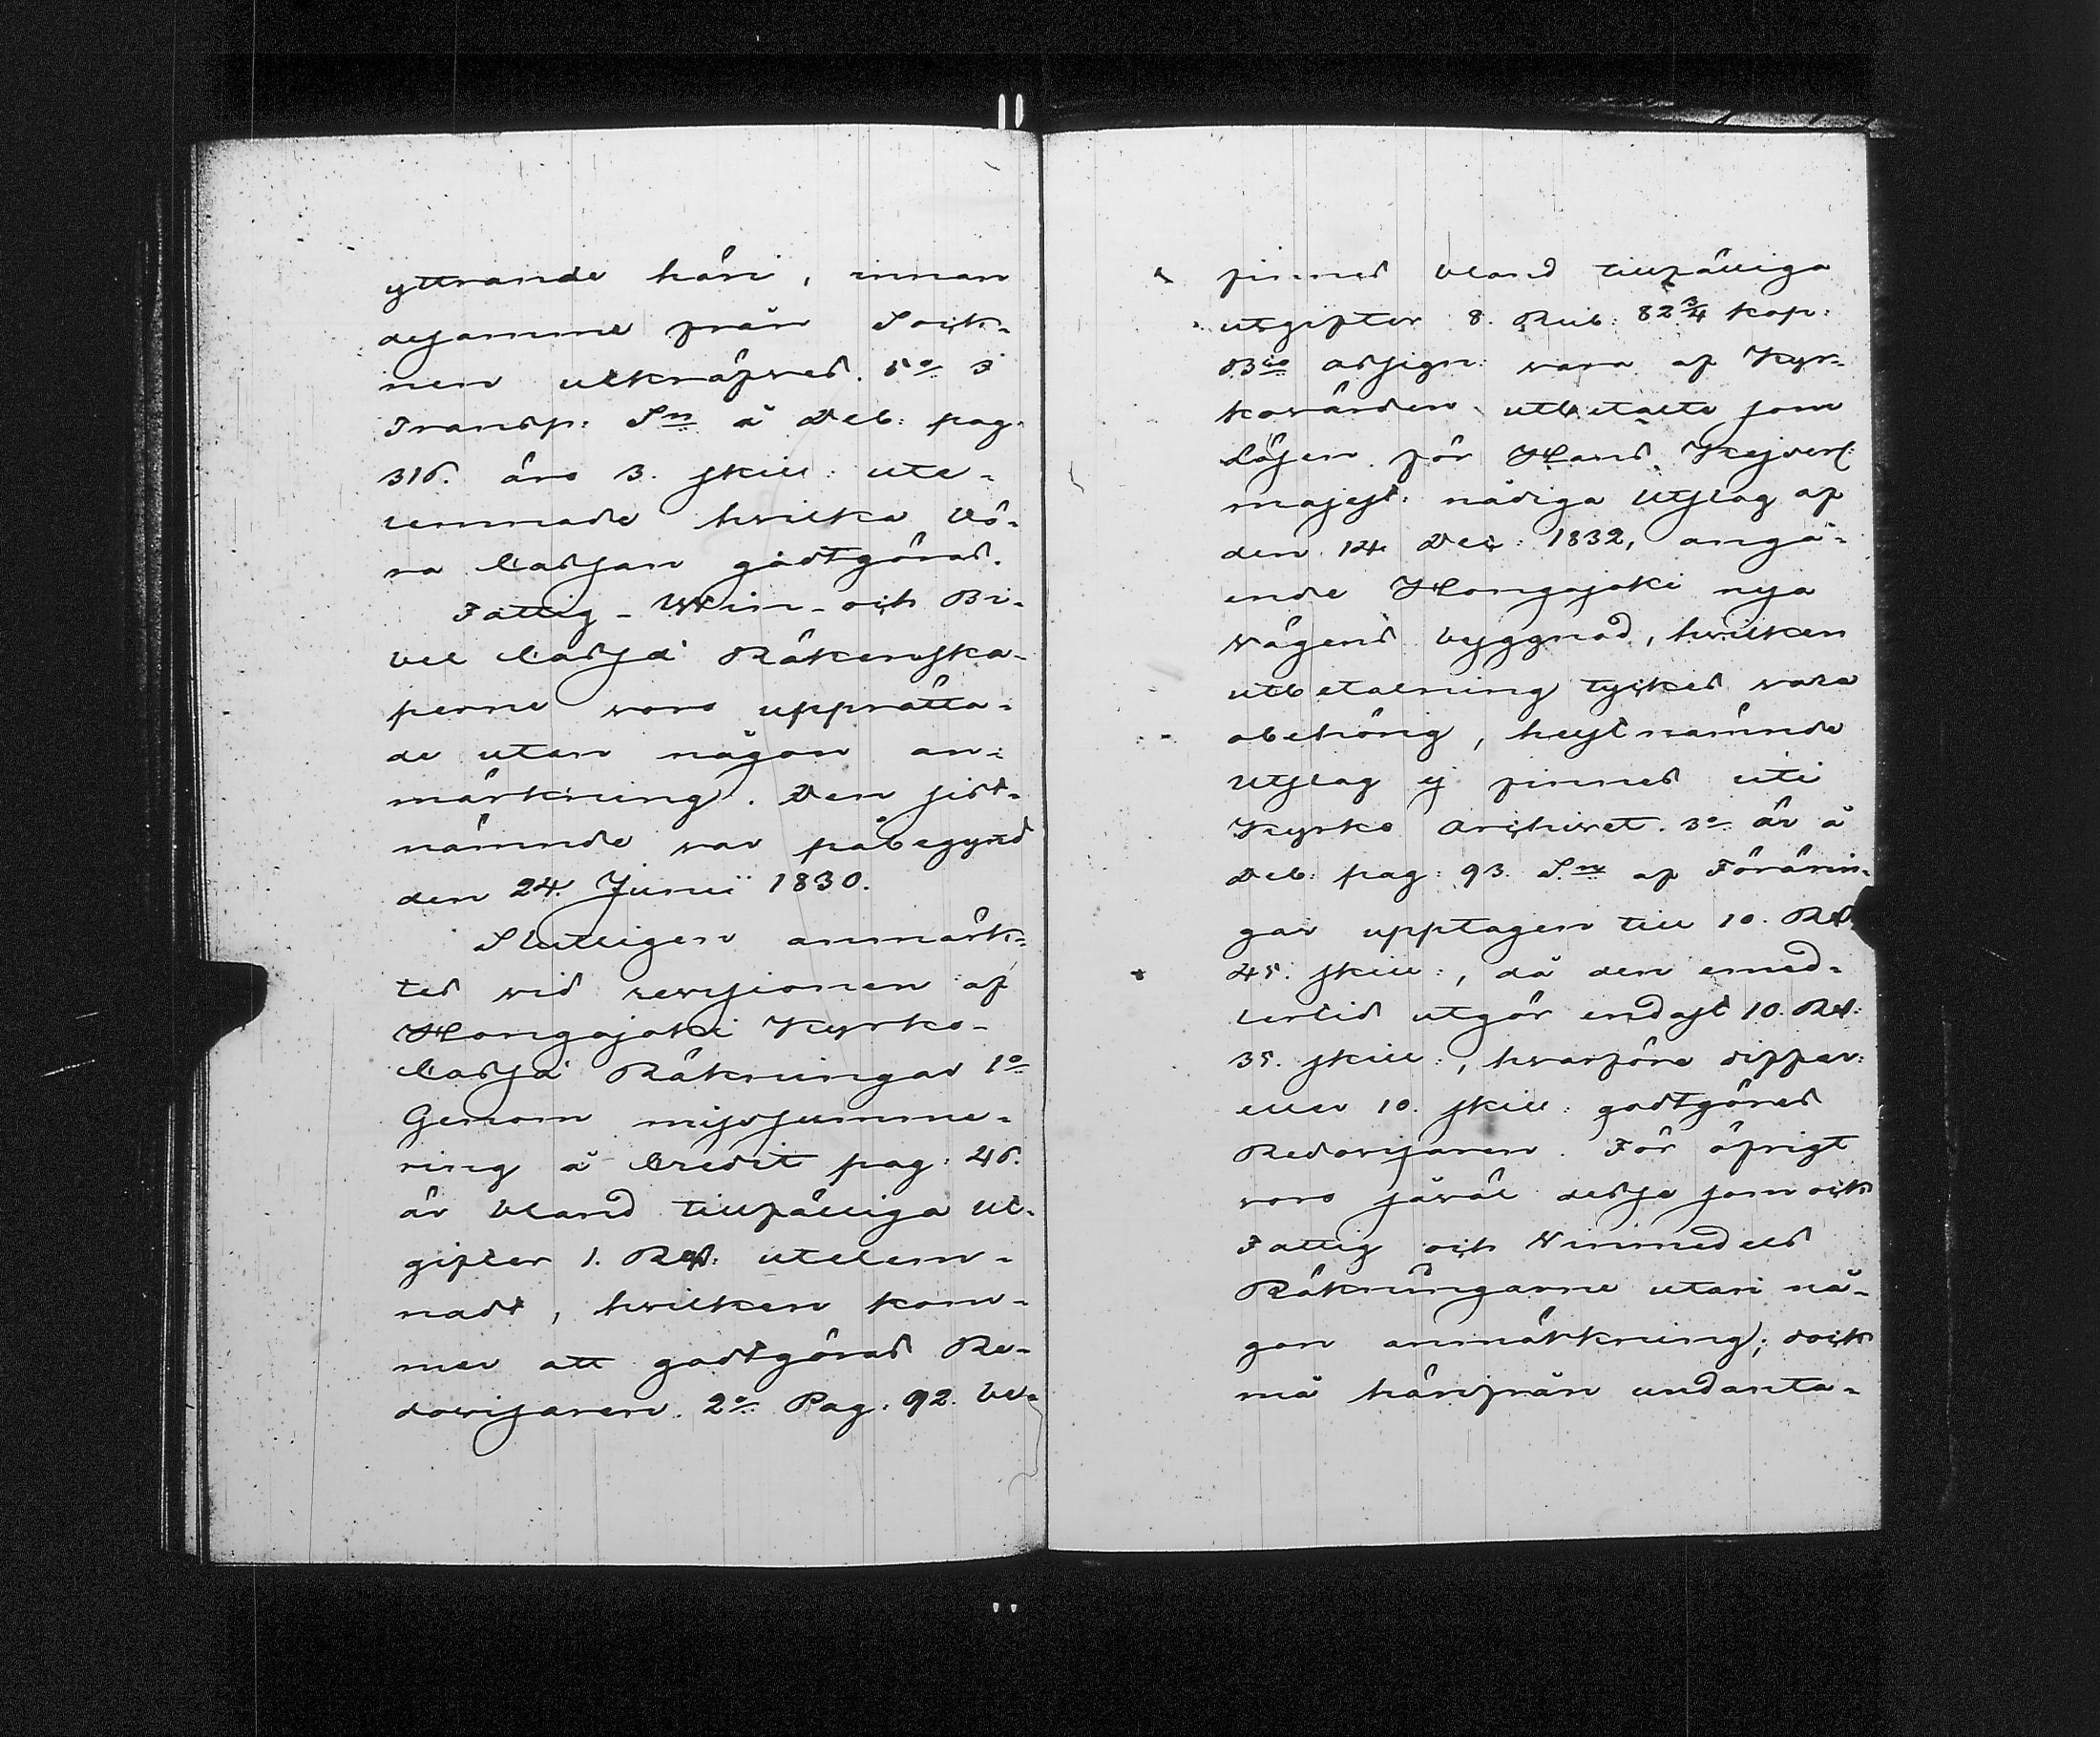 yttrande häri, innan
desamme från Sock-
nen utkräfves. 5o I
Transp: Sn å Deb: pag:
316. äro 3. skill: ute-
lemnade hvilka bö-
ra Cassan godtgöras.
Fattig- Win- och Bi-
bel Cassa Räkenska-
perne voro upprätta-
de utan någon an-
märkning. Den sist-
nämnde var påbegynd
den 24. Junii 1830.
Slutligen anmärk-
tes vid revisionen af
Hongajoki Kyrko-
Cassa Räkningar 1o
Genom missumme-
ring å Credit pag: 46.
är bland tillfälliga ut-
gifter 1. Rd: utelem-
nadt, hvilken kom-
mer att godtgöras Re-
dovisaren. 2o Pag: 92. be-
finnes bland tillfälliga
utgifter 8. Rub: 82 3/4 kop:
Bco Assign: vara af Kyr-
kovärden utbetalte som
Lösen för Hans Kejserl:
majest: nådiga Utslag af
den 14 Dec: 1832, angå-
ende Hongojoki nya
vägens byggnad, hvilken
utbetalning tyckes vara
obehörig, helst nämnde
Utslag ej finnes uti
Kyrko Archivet. 3o är å
Deb: pag: 93. Sn af Förärin-
gar upptagen till 10. Rd
45. skill:, då den emed-
lertid utgör endast 10. Rd:
35. skill:, hvarföre differ:
eller 10. skill: godtgöres
Redovisaren. För öfrigt
voro såväl desse som ock
Fattig och Vinmedels
Räkningarne utan nå-
gon anmärkning; dock
må härifrån undanta-